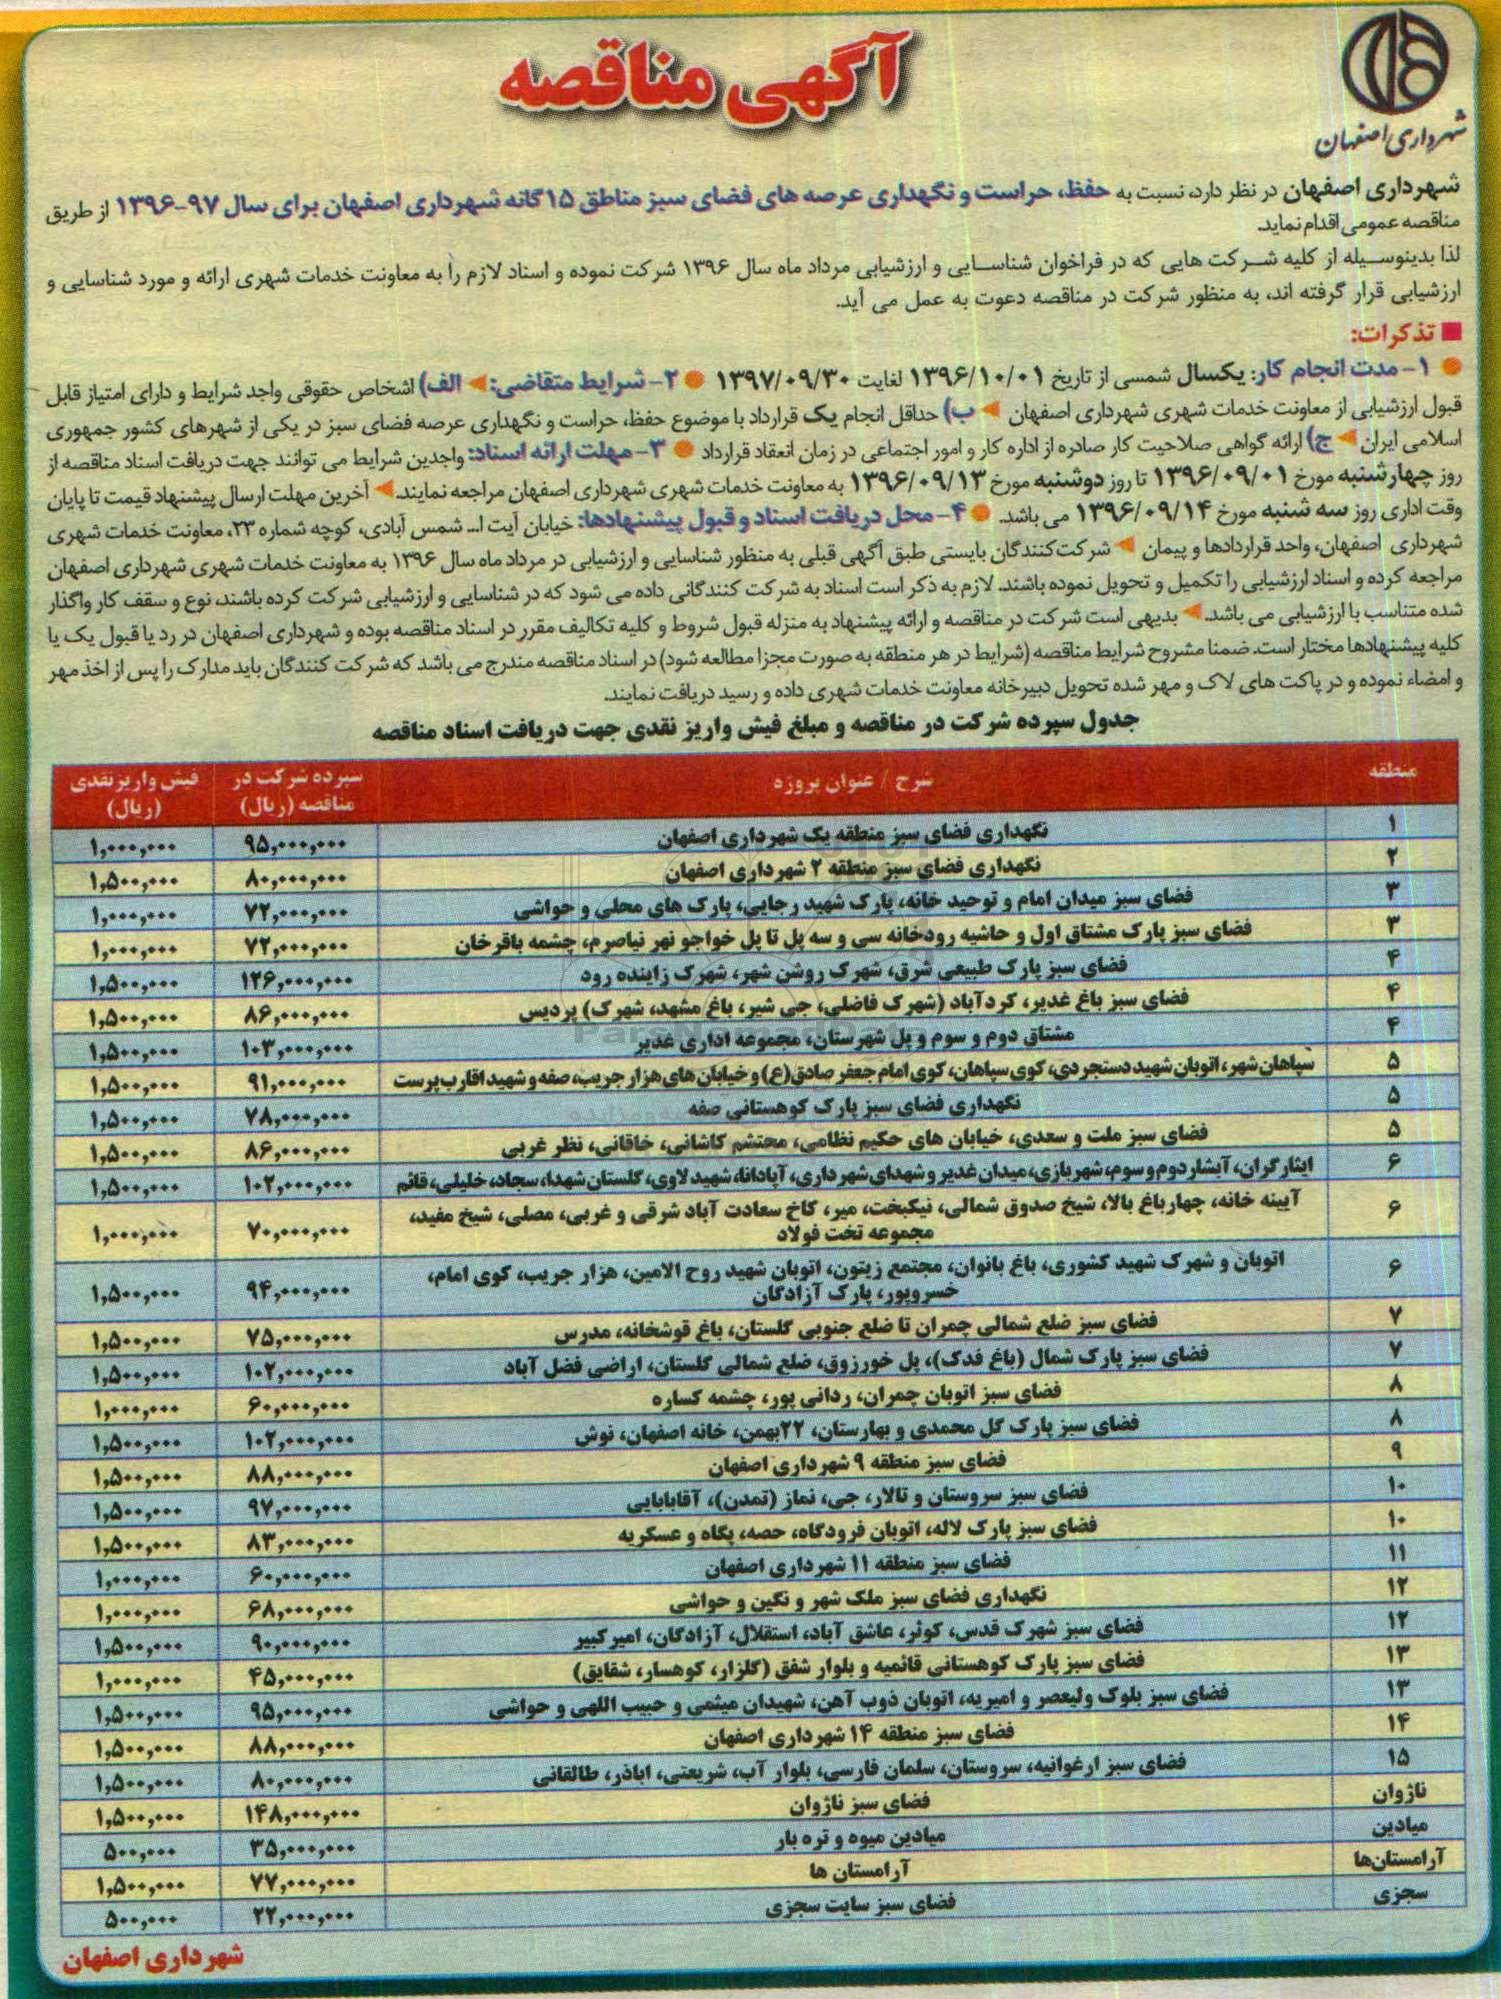 شهرداری اصفهان
آگهی مناقصه
شهرداری اصفهان در نظر دارد، نسبت به حفظ، حراست و نگهداری عرصه های فضای سبز مناطق ۱۵گانه شهرداری اصفهان برای سال ۹۷-۱۳۹۶ از طریق
مناقصه عمومی اقدام نماید.
لذا بدینوسیله از کلیه شرکت هایی که در فراخوان شناسایی و ارزشیابی مرداد ماه سال ۱۳۹۶ شرکت نموده و اسناد لازم را به معاونت خدمات شهری ارائه و مورد شناسایی و
ارزشیابی قرار گرفته اند، به منظور شرکت در مناقصه دعوت به عمل می آید.
تذکرات:
۱- مدت انجام کار: یکسال شمسی از تاریخ ۱۳۹۶/۱۰/۰۱ لغایت ۱۳۹۷/۰۹/۳۰ ۲- شرایط متقاضی: الف) اشخاص حقوقی واجد شرایط و دارای امتیاز قابل
قبول ارزشیابی از معاونت خدمات شهری شهرداری اصفهان ب) حداقل انجام یک قرارداد با موضوع حفظ، حراست و نگهداری عرصه فضای سبز در یکی از شهرهای کشور جمهوری
اسلامی ایران ج) ارائه گواهی صلاحیت کار صادره از اداره کار و امور اجتماعی در زمان انعقاد قرارداد ۳- مهلت ارائه اسناد: واجدین شرایط می توانند جهت دریافت اسناد مناقصه از
روز چهارشنبه مورخ ۱۳۹۶/۰۹/۰۱ تا روز دوشنبه مورخ ۱۳۹۶/۰۹/۱۳ به معاونت خدمات شهری شهرداری اصفهان مراجعه نمایند. آخرین مهلت ارسال پیشنهاد قیمت تا پایان
وقت اداری روز سه شنبه مورخ ۱۳۹۶/۰۹/۱۴ می باشد. ۴- محل دریافت اسناد و قبول پیشنهادها: خیابان آیت ا... شمس آبادی، کوچه شماره ۲۳، معاونت خدمات شهری
شهرداری اصفهان، واحد قراردادها و پیمان شرکت‌کنندگان بایستی طبق آگهی قبلی به منظور شناسایی و ارزشیابی در مرداد ماه سال ۱۳۹۶ به معاونت خدمات شهری شهرداری اصفهان
مراجعه کرده و اسناد ارزشیابی را تکمیل و تحویل نموده باشند. لازم به ذکر است اسناد به شرکت کنندگانی داده می شود که در شناسایی و ارزشیابی شرکت کرده باشند، نوع و سقف کار واگذار
شده متناسب با ارزشیابی می باشد. بدیهی است شرکت در مناقصه و ارائه پیشنهاد به منزله قبول شروط و کلیه تکالیف مقرر در اسناد مناقصه بوده و شهرداری اصفهان در رد یا قبول یک یا
کلیه پیشنهادها مختار است. ضمنا مشروح شرایط مناقصه (شرایط در هر منطقه به صورت مجزا مطالعه شود) در اسناد مناقصه مندرج می باشد که شرکت کنندگان باید مدارک را پس از اخذ مهر
و امضاء نموده و در پاکت های لاک و مهر شده تحویل دبیرخانه معاونت خدمات شهری داده و رسید دریافت نمایند.
جدول سپرده شرکت در مناقصه و مبلغ فیش واریز نقدی جهت دریافت اسناد مناقصه
منطقه شرح / عنوان پروژه سپرده شرکت در مناقصه (ریال) فیش واریز نقدی (ریال)
۱ نگهداری فضای سبز منطقه یک شهرداری اصفهان ۹۵,۰۰۰,۰۰۰ ۱,۰۰۰,۰۰۰
۲ نگهداری فضای سبز منطقه ۲ شهرداری اصفهان ۸۰,۰۰۰,۰۰۰ ۱,۵۰۰,۰۰۰
۳ فضای سبز میدان امام و توحید خانه، پارک شهید رجایی، پارک های محلی و حواشی ۷۲,۰۰۰,۰۰۰ ۱,۰۰۰,۰۰۰
۳ فضای سبز پارک مشتاق اول و حاشیه رودخانه سی و سه پل تا پل خواجو نهر نیاصرم، چشمه باقرخان ۷۲,۰۰۰,۰۰۰ ۱,۰۰۰,۰۰۰
۴ فضای سبز پارک طبیعی شرق، شهرک روشن شهر، شهرک زاینده رود ۱۲۶,۰۰۰,۰۰۰ ۱,۵۰۰,۰۰۰
۴ فضای سبز باغ غدیر، کردآباد (شهرک فاضلی، جی شیر، باغ مشهد، شهرک) پردیس ۸۶,۰۰۰,۰۰۰ ۱,۵۰۰,۰۰۰
۴ مشتاق دوم و سوم و پل شهرستان، مجموعه اداری غدیر ۱۰۳,۰۰۰,۰۰۰ ۱,۵۰۰,۰۰۰
۵ سپاهان شهر، اتوبان شهید دستجردی، کوی سپاهان، کوی امام جعفر صادق(ع) و خیابان های هزار جریب، صفه و شهید اقارب پرست ۹۱,۰۰۰,۰۰۰ ۱,۵۰۰,۰۰۰
۵ نگهداری فضای سبز پارک کوهستانی صفه ۷۸,۰۰۰,۰۰۰ ۱,۵۰۰,۰۰۰
۵ فضای سبز ملت و سعدی، خیابان های حکیم نظامی، محتشم کاشانی، خاقانی، نظر غربی ۸۶,۰۰۰,۰۰۰ ۱,۵۰۰,۰۰۰
۶ ایثارگران، آبشار دوم و سوم، شهربازی، میدان غدیر و شهدای شهرداری، آپادانا، شهید لاوی، گلستان شهدا، سجاد، خلیلی، قائم ۱۰۲,۰۰۰,۰۰۰ ۱,۵۰۰,۰۰۰
۶ آیینه خانه، چهارباغ بالا، شیخ صدوق شمالی، نیکبخت، میر، کاخ سعادت آباد شرقی و غربی، مصلی، شیخ مفید،
مجموعه تخت فولاد ۷۰,۰۰۰,۰۰۰ ۱,۰۰۰,۰۰۰
۶ اتوبان و شهرک شهید کشوری، باغ بانوان، مجتمع زیتون، اتوبان شهید روح الامین، هزار جریب، کوی امام،
خسروپور، پارک آزادگان ۹۴,۰۰۰,۰۰۰ ۱,۵۰۰,۰۰۰
۷ فضای سبز ضلع شمالی چمران تا ضلع جنوبی گلستان، باغ قوشخانه، مدرس ۷۵,۰۰۰,۰۰۰ ۱,۵۰۰,۰۰۰
۷ فضای سبز پارک شمال (باغ فدک)، پل خورزوق، ضلع شمالی گلستان، اراضی فضل آباد ۱۰۲,۰۰۰,۰۰۰ ۱,۵۰۰,۰۰۰
۸ فضای سبز اتوبان چمران، ردانی پور، چشمه کساره ۶۰,۰۰۰,۰۰۰ ۱,۰۰۰,۰۰۰
۸ فضای سبز پارک گل محمدی و بهارستان، ۲۲بهمن، خانه اصفهان، نوش ۱۰۲,۰۰۰,۰۰۰ ۱,۵۰۰,۰۰۰
۹ فضای سبز منطقه ۹ شهرداری اصفهان ۸۸,۰۰۰,۰۰۰ ۱,۵۰۰,۰۰۰
۱۰ فضای سبز سروستان و تالار، جی، نماز (تمدن)، آقابابایی ۹۷,۰۰۰,۰۰۰ ۱,۵۰۰,۰۰۰
۱۰ فضای سبز پارک لاله، اتوبان فرودگاه، حصه، پگاه و عسکریه ۸۳,۰۰۰,۰۰۰ ۱,۵۰۰,۰۰۰
۱۱ فضای سبز منطقه ۱۱ شهرداری اصفهان ۶۰,۰۰۰,۰۰۰ ۱,۰۰۰,۰۰۰
۱۲ نگهداری فضای سبز ملک شهر و نگین و حواشی ۶۸,۰۰۰,۰۰۰ ۱,۰۰۰,۰۰۰
۱۲ فضای سبز شهرک قدس، کوثر، عاشق آباد، استقلال، آزادگان، امیرکبیر ۹۰,۰۰۰,۰۰۰ ۱,۵۰۰,۰۰۰
۱۳ فضای سبز پارک کوهستانی قائمیه و بلوار شفق (گلزار، کوهسار، شقایق) ۴۵,۰۰۰,۰۰۰ ۱,۰۰۰,۰۰۰
۱۳ فضای سبز بلوک ولیعصر و امیریه، اتوبان ذوب آهن، شهیدان میثمی و حبیب اللهی و حواشی ۹۵,۰۰۰,۰۰۰ ۱,۵۰۰,۰۰۰
۱۴ فضای سبز منطقه ۱۴ شهرداری اصفهان ۸۸,۰۰۰,۰۰۰ ۱,۵۰۰,۰۰۰
۱۵ فضای سبز ارغوانیه، سروستان، سلمان فارسی، بلوار آب، شریعتی، اباذر، طالقانی ۸۰,۰۰۰,۰۰۰ ۱,۵۰۰,۰۰۰
ناژوان فضای سبز ناژوان ۱۴۸,۰۰۰,۰۰۰ ۱,۵۰۰,۰۰۰
میادین میادین میوه و تره بار ۳۵,۰۰۰,۰۰۰ ۵۰۰,۰۰۰
آرامستان‌ها آرامستان ها ۷۷,۰۰۰,۰۰۰ ۱,۵۰۰,۰۰۰
سجزی فضای سبز سایت سجزی ۲۲,۰۰۰,۰۰۰ ۵۰۰,۰۰۰
شهرداری اصفهان